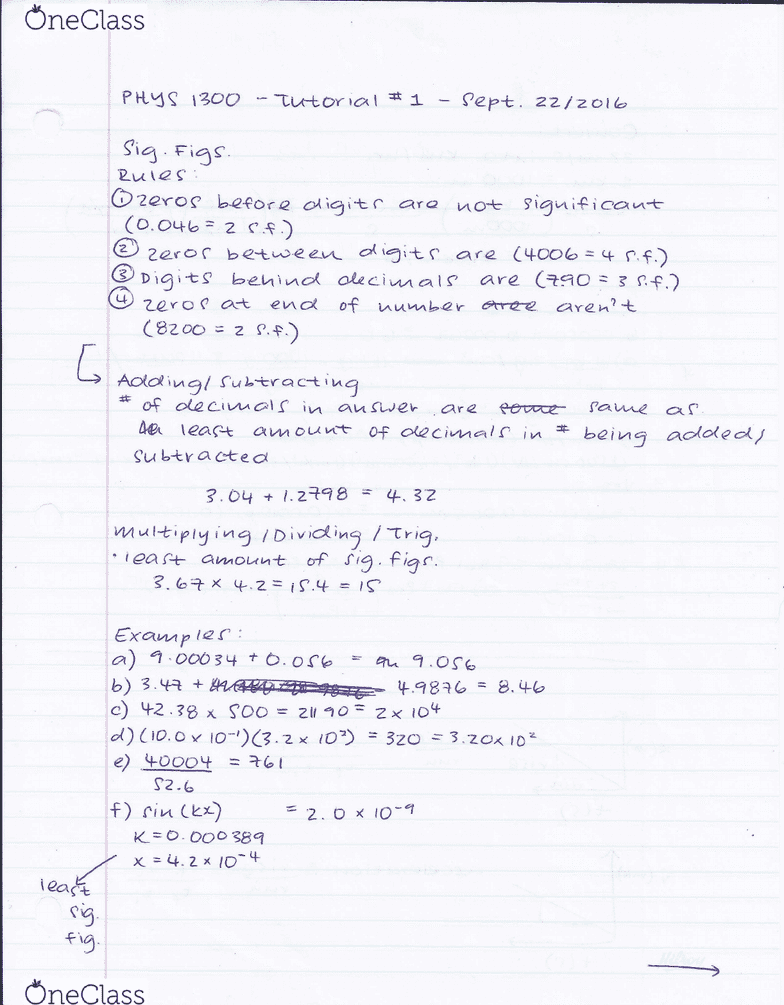 OneClass
PHYS 1300 - Tutorial # 1 - Sept. 22/2016
Sig. Figs.
Rules:
① zeros before digits are not significant
(0.046 = 2 s.f.)
② zeros between digits are (4006 = 4 s.f.)
③ Digits behind decimals are (790 = 3 s.f.)
④ zeros at end of number aren't
(8200 = 2 s.f.)
Adding/Subtracting
# of decimals in answer are same as
least amount of decimals in # being added/
subtracted
3.04 + 1.2798 = 4.32
Multiplying / Dividing / Trig.
· least amount of sig. figs.
3.67 × 4.2 = 15.4 = 15
Examples:
a) 9.00034 + 0.056 = 9.056
b) 3.47 + 4.9876 = 8.46
c) 42.38 × 500 = 21190 = 2 × 10⁴
d) (10.0 × 10⁻¹)(3.2 × 10²) = 320 = 3.20 × 10²
e) 40004 = 761
52.6
f) sin(kx) = 2.0 × 10⁻⁹
K = 0.000389
x = 4.2 × 10⁻⁴
least
sig.
fig.
OneClass